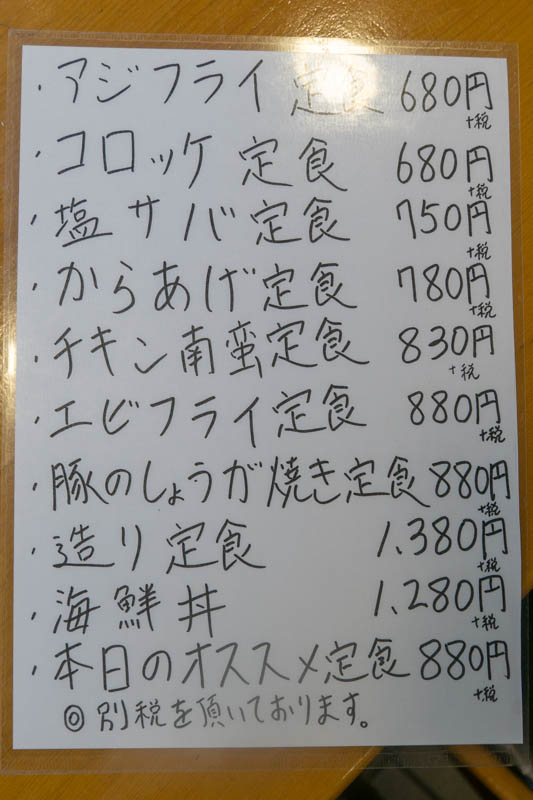 ・アジフライ定食 680円+税
・コロッケ定食 680円+税
・塩サバ定食 750円+税
・からあげ定食 780円+税
・チキン南蛮定食 830円+税
・エビフライ定食 880円+税
・豚のしょうが焼き定食 880円+税
・造り定食 1,380円+税
・海鮮丼 1,280円+税
・本日のオススメ定食 880円+税
◎別税を頂いております。